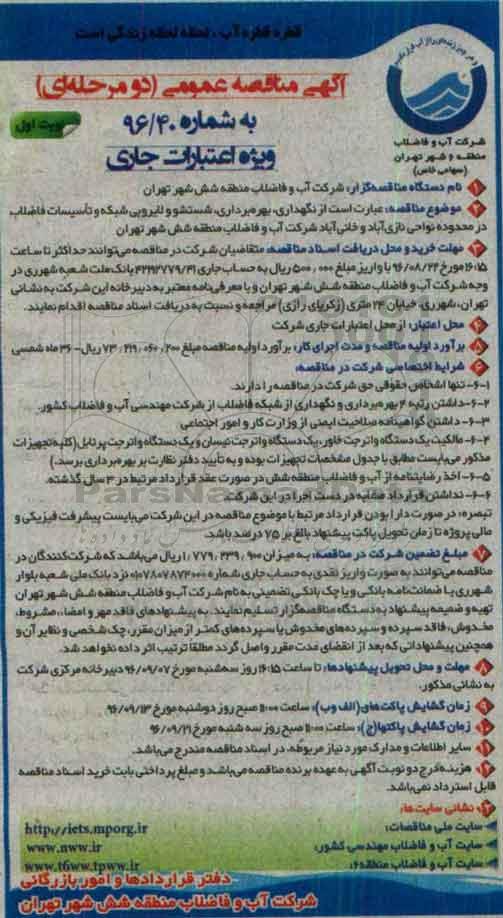 قطره قطره آب، لحظه لحظه زندگی است
شرکت آب و فاضلاب
منطقه ۶ شهر تهران
(سهامی خاص)
آگهی مناقصه عمومی (دو مرحله‌ای)
به شماره ۹۶/۴۰
نوبت اول
ویژه اعتبارات جاری
۱ نام دستگاه مناقصه‌گزار: شرکت آب و فاضلاب منطقه شش شهر تهران
۲ موضوع مناقصه: عبارت است از نگهداری، بهره‌برداری، شستشو و لایروبی شبکه و تأسیسات فاضلاب
در محدوده نواحی نازی‌آباد و خانی‌آباد شرکت آب و فاضلاب منطقه شش شهر تهران
۳ مهلت خرید و محل دریافت اسناد مناقصه: متقاضیان شرکت در مناقصه می‌توانند حداکثر تا ساعت
۱۶:۱۵ مورخ ۹۶/۰۸/۲۲ با واریز مبلغ ۵۰۰,۰۰۰ ریال به حساب جاری بانک ملت شعبه شهرری در
وجه شرکت آب و فاضلاب منطقه شش شهر تهران و با معرفی‌نامه معتبر به دبیرخانه این شرکت به نشانی
تهران، شهرری، خیابان ۲۴ متری (زکریای رازی) مراجعه و نسبت به دریافت اسناد مناقصه اقدام نمایند.
۴ محل اعتبار: از محل اعتبارات جاری شرکت
۵ برآورد اولیه مناقصه و مدت اجرای کار: برآورد اولیه مناقصه مبلغ ۷۳,۲۱۹,۰۶۰,۲۰۰ ریال - ۳۶ ماه شمسی
۶ شرایط اختصاصی شرکت در مناقصه:
۶-۱- تنها اشخاص حقوقی حق شرکت در مناقصه را دارند.
۶-۲- داشتن رتبه ۴ بهره‌برداری و نگهداری از شبکه فاضلاب از شرکت مهندسی آب و فاضلاب کشور.
۶-۳- داشتن گواهینامه صلاحیت ایمنی از وزارت کار و امور اجتماعی
۶-۴- مالکیت یک دستگاه واترجت خاور، یک دستگاه واترجت نیسان و یک دستگاه واترجت پرتابل (کلیه تجهیزات
مذکور می‌بایست مطابق با جدول مشخصات تجهیزات بوده و به تأیید دفتر نظارت بر بهره‌برداری برسد.)
۶-۵- اخذ رضایتنامه از آب و فاضلاب منطقه شش در صورت عقد قرارداد مرتبط در ۳ سال گذشته.
۶-۶- نداشتن قرارداد مشابه در دست اجرا در این شرکت.
تبصره: در صورت دارا بودن قرارداد مرتبط با موضوع مناقصه در این شرکت می‌بایست پیشرفت فیزیکی و
مالی پروژه تا زمان تحویل پاکت پیشنهاد بالغ بر ۷۵ درصد باشد.
۷ مبلغ تضمین شرکت در مناقصه: به میزان ۱,۷۷۹,۲۳۹,۹۰۰ ریال می‌باشد که شرکت‌کنندگان در
مناقصه می‌توانند به صورت واریز نقدی به حساب جاری شماره نزد بانک ملی شعبه بلوار
شهرری یا ضمانت‌نامه بانکی و یا چک بانکی تضمینی به نام شرکت آب و فاضلاب منطقه شش شهر تهران
تهیه و ضمیمه پیشنهاد به دستگاه مناقصه‌گزار تسلیم نمایند. به پیشنهادهای فاقد مهر و امضاء، مشروط،
مخدوش، فاقد سپرده و سپرده‌های مخدوش یا سپرده‌های کمتر از میزان مقرر، چک شخصی و نظایر آن و
همچنین پیشنهاداتی که بعد از انقضای مدت مقرر واصل گردد مطلقا ترتیب اثر داده نخواهد شد.
۸ مهلت و محل تحویل پیشنهادها: تا ساعت ۱۶:۱۵ روز سه‌شنبه مورخ ۹۶/۰۹/۰۷ دبیرخانه مرکزی شرکت
به نشانی مذکور.
۹ زمان گشایش پاکت‌های (الف و ب): ساعت ۱۱:۰۰ صبح روز دوشنبه مورخ ۹۶/۰۹/۱۳
۱۰ زمان گشایش پاکت‌ها (ج): ساعت ۱۱:۰۰ صبح روز سه شنبه مورخ ۹۶/۰۹/۲۱
۱۱ سایر اطلاعات و مدارک مورد نیاز مربوطه، در اسناد مناقصه مندرج می‌باشد.
۱۲ هزینه درج دو نوبت آگهی به عهده برنده مناقصه می‌باشد و مبلغ پرداختی بابت خرید اسناد مناقصه
قابل استرداد نمی‌باشد.
۱۳ نشانی سایت‌ها:
سایت ملی مناقصات: http://iets.mporg.ir
سایت آب و فاضلاب مهندسی کشور: www.nww.ir
سایت آب و فاضلاب منطقه ۶: www.t6ww.tpww.ir
دفتر قراردادها و امور بازرگانی
شرکت آب و فاضلاب منطقه شش شهر تهران